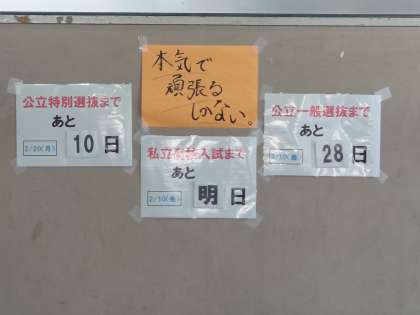 本気で
頑張る
しかない。
公立特別選抜まで
あと
2/20(月)
10日
私立高校入試まで
あと
2/10(金)
明日
公立一般選抜まで
あと
28日